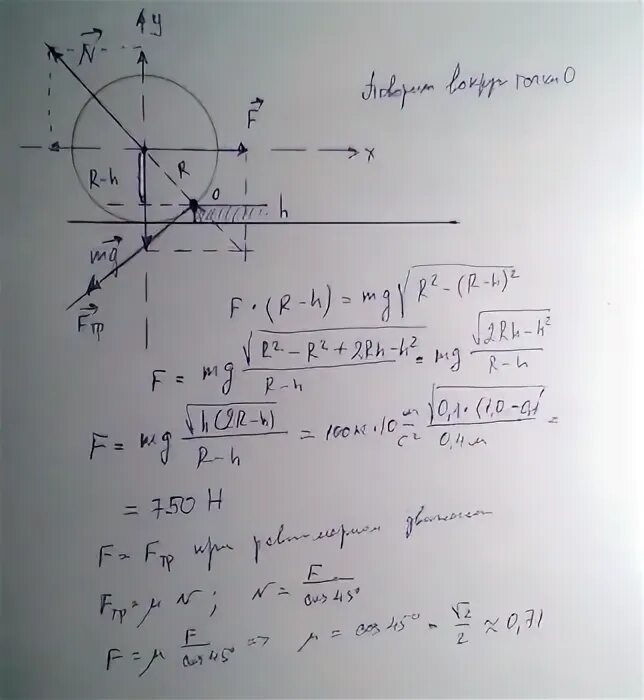 y
N⃗
Поворот вокруг точки О
F⃗
x
R
R-h
O
h
mg⃗
F⃗тр
F · (R-h) = mg √(R² - (R-h)²)
F = mg √(R² - R² + 2Rh - h²) / (R-h) = mg √(2Rh - h²) / (R-h)
F = mg √(h(2R-h)) / (R-h) = 100кг · 10 м/с² √(0,1 · (1,0 - 0,1)) / 0,4м =
= 750 Н
F = Fтр при равномерном движении
Fтр = μ N ; N = F / cos 45°
F = μ F / cos 45° => μ = cos 45° = √2 / 2 ≈ 0,71